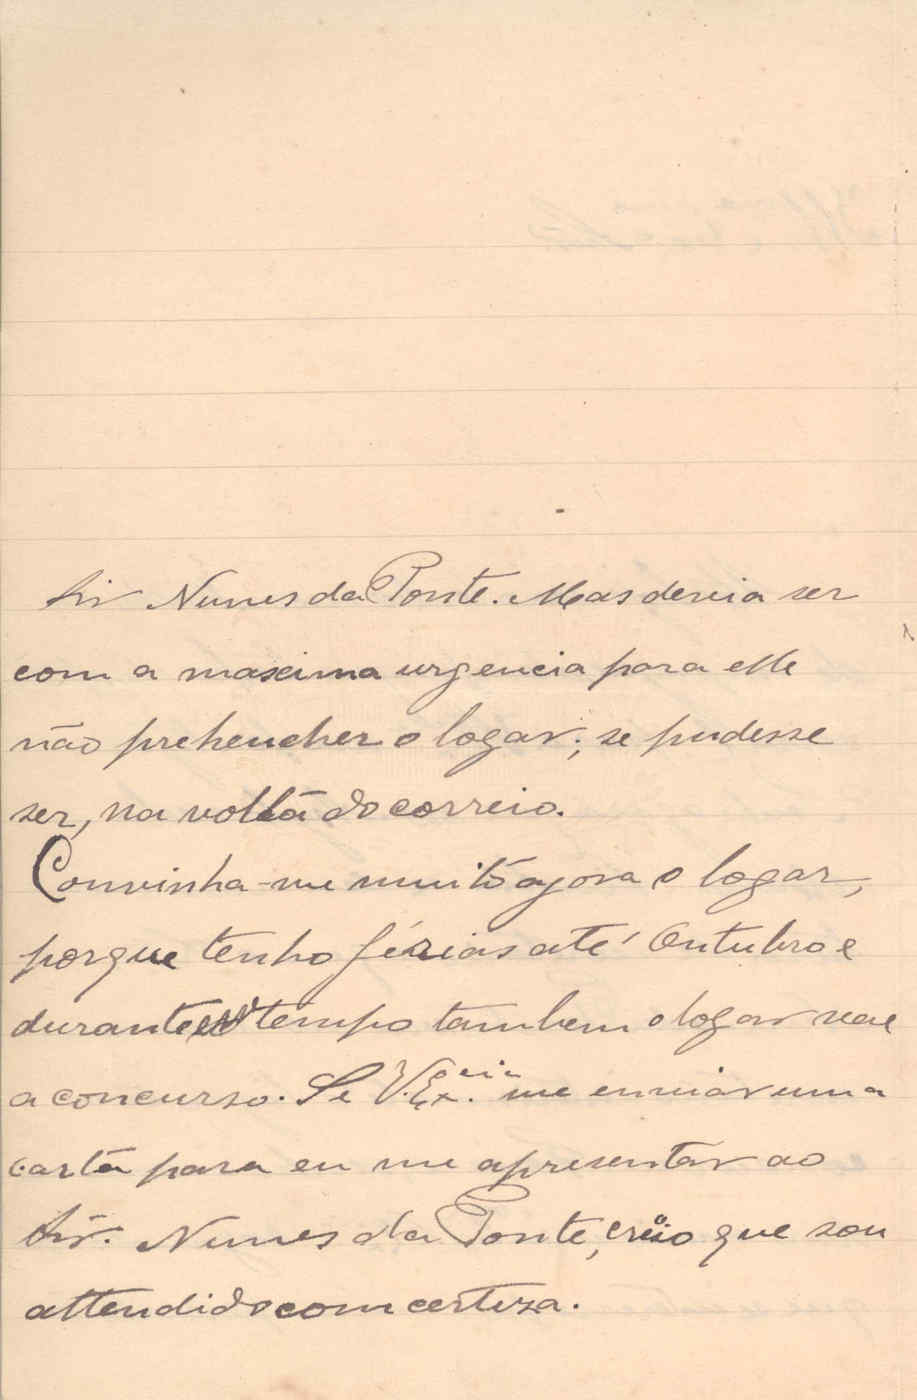 Snr Nunes da Ponte. Mas devia ser
com a maxima urgencia para elle
não prehencher o logar; se pudesse
ser, na volta do correio.
Convinha-me muito agora o logar,
porque tenho férias até Outubro e
durante tempo tambem o logar vae
a concurso. Se V. Ex.cia me enviar uma
carta para eu me apresentar ao
Snr. Nunes da Ponte, creio que sou
attendido com certeza.